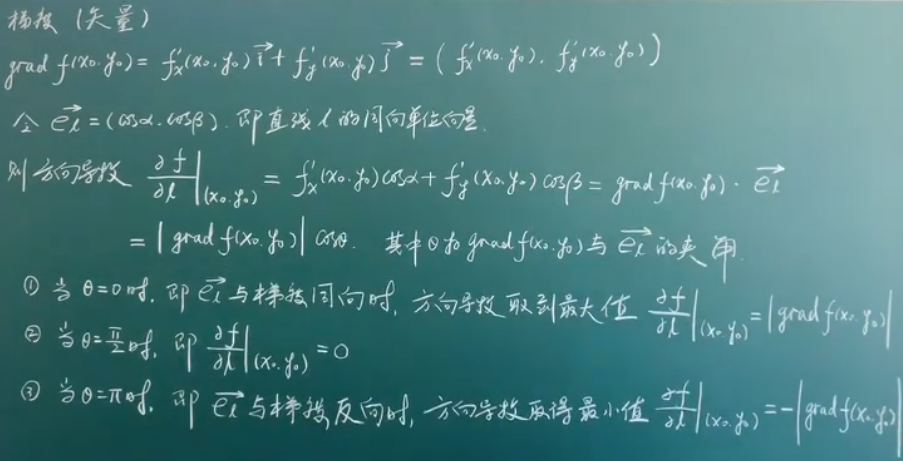 梯度（矢量）
grad f(x₀,y₀) = f'ₓ(x₀,y₀)i⃗ + f'ᵧ(x₀,y₀)j⃗ = (f'ₓ(x₀,y₀), f'ᵧ(x₀,y₀))
令 e⃗ₗ = (cosα, cosβ). 即直线 l 的同向单位向量.
则方向导数 ∂f/∂l|(x₀,y₀) = f'ₓ(x₀,y₀)cosα + f'ᵧ(x₀,y₀)cosβ = grad f(x₀,y₀)·e⃗ₗ
= |grad f(x₀,y₀)| cosθ. 其中θ为grad f(x₀,y₀)与 e⃗ₗ 的夹角.
① 当 θ=0时, 即 e⃗ₗ 与梯度同向时, 方向导数取到最大值 ∂f/∂l|(x₀,y₀) = |grad f(x₀,y₀)|
② 当θ=π/2时, 即 ∂f/∂l|(x₀,y₀) = 0
③ 当θ=π时, 即 e⃗ₗ 与梯度反向时, 方向导数取得最小值 ∂f/∂l|(x₀,y₀) = -|grad f(x₀,y₀)|